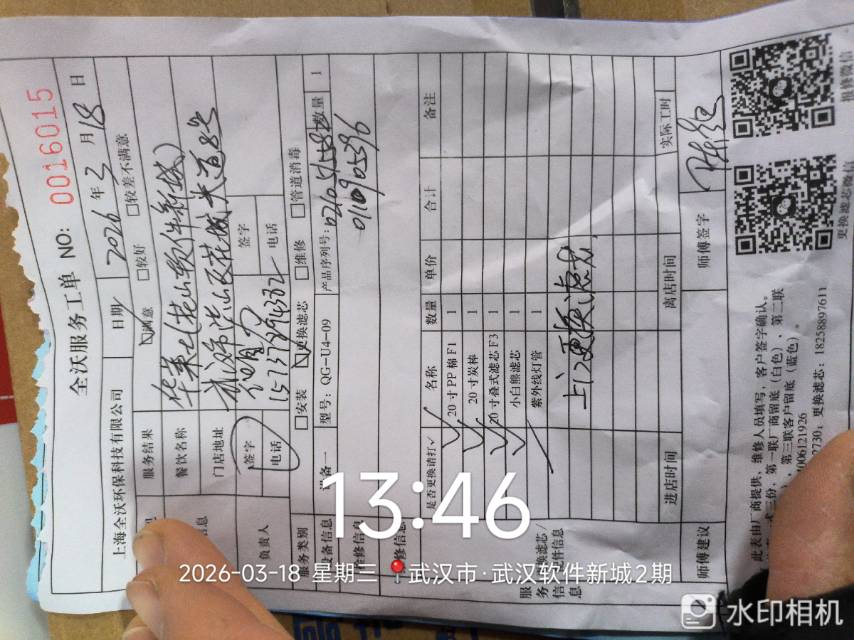 全沃服务工单 NO: 0016015
上海全沃环保科技有限公司 日期 2026年3月18日
服务结果 满意 □较好 □较差不满意
餐饮名称 华莱士(花山软件新城)
门店地址
签字 签字
负责人 电话 电话
服务类别 □安装 更换滤芯 □维修 □管道消毒
设备信息 设备一 型号: QG-U4-09 产品序列号: 数量 1
0110905596
是否更换请打✓ 名称 数量 单价 合计 备注
✓ 20寸PP棉F1 1
✓ 20寸炭棒 1
✓ 20寸叠式滤芯F3 1
✓ 小白熊滤芯 1
紫外线灯管 1
上门更换滤芯
进店时间 离店时间 实际工时
师傅建议 师傅签字
此表由厂商提供、维修人员填写，客户签字确认。
第一联厂商留底（白色）、第二联
、第三联客户留底（蓝色）。
4006121926
2730; 更换滤芯: 18258897611
更换滤芯微信 报修微信
13:46
2026-03-18 星期三 武汉市·武汉软件新城2期
水印相机